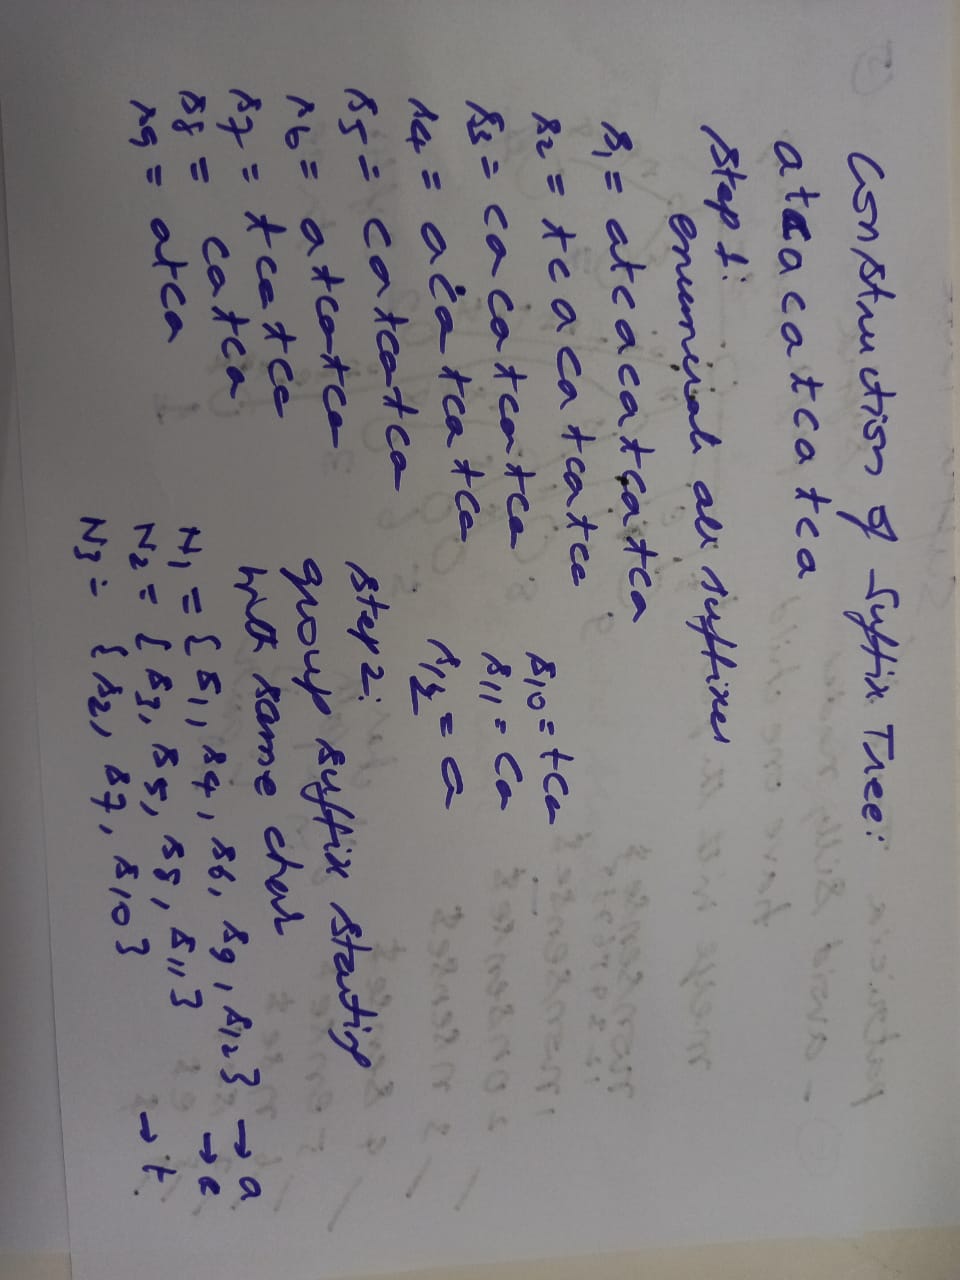 Construction of Suffix Tree:
atcacatcatca
Step 1:
enumerate all suffixes
s1 = atcacatcatca
s2 = tcacatcatca
s3 = cacatcatca
s4 = acatcatca
s5 = catcatca
s6 = atcatca
s7 = tcatca
s8 = catca
s9 = atca
s10 = tca
s11 = ca
s12 = a
Step 2:
group suffix starting
with same char
N1 = { s1, s4, s6, s9, s12} → a
N2 = { s3, s5, s8, s11} → c
N3 = { s2, s7, s10} → t